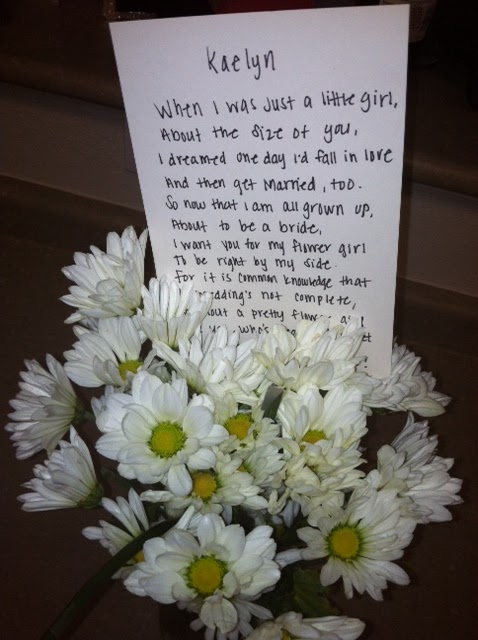 Kaelyn
When I was just a little girl,
About the size of you,
I dreamed one day I'd fall in love
And then get married, too.
So now that I am all grown up,
About to be a bride,
I want you for my flower girl
To be right by my side.
For it is common knowledge that
wedding's not complete,
out a pretty flower
who's